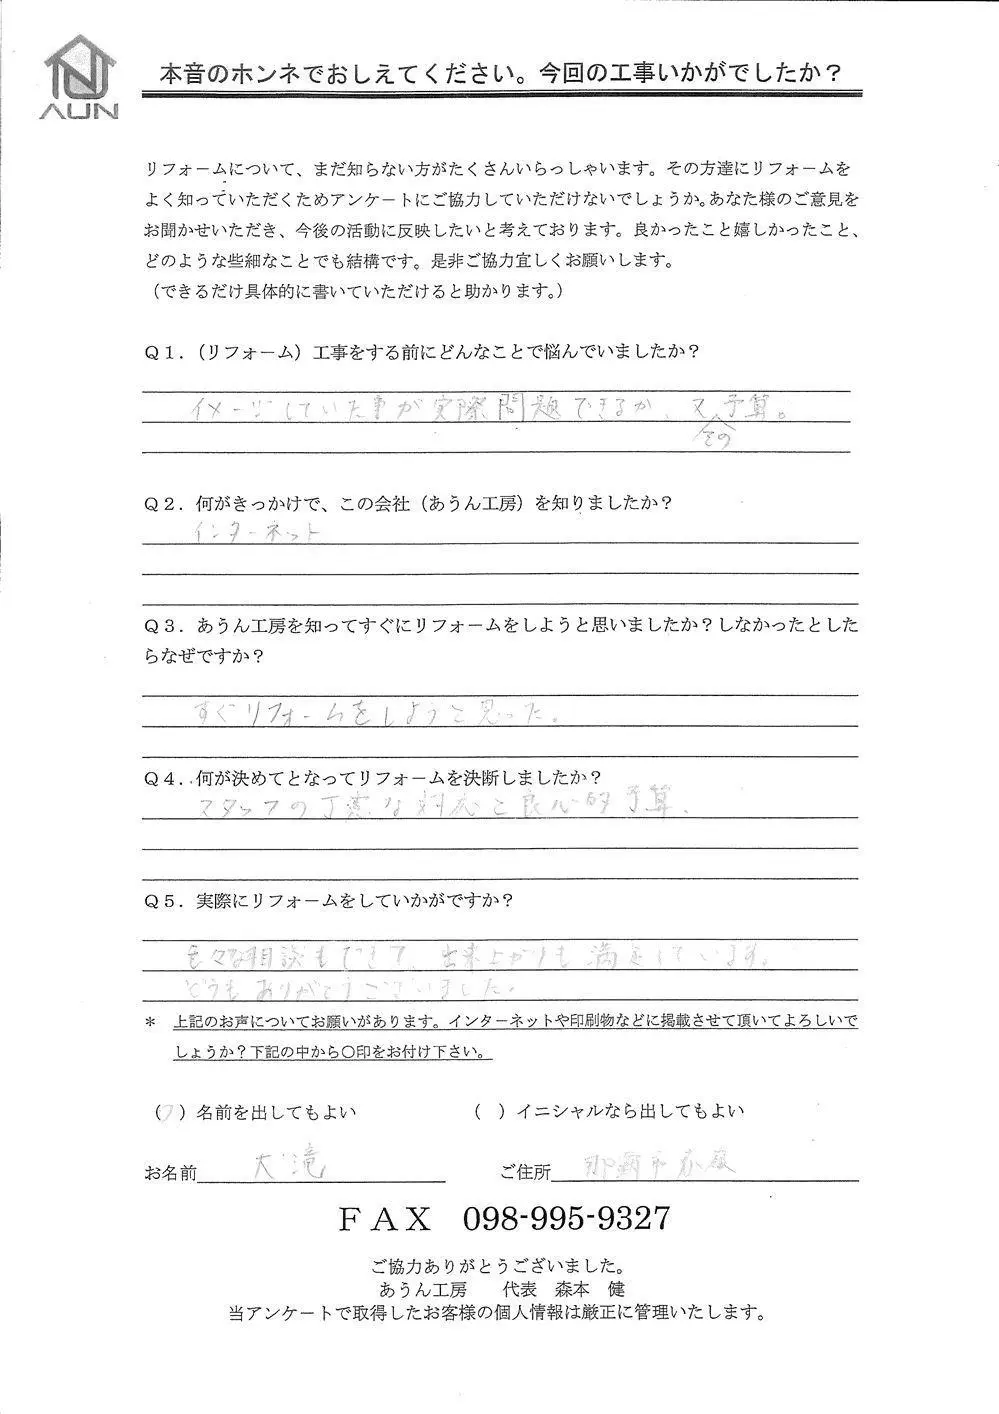 AUN
本音のホンネでおしえてください。今回の工事いかがでしたか？
リフォームについて、まだ知らない方がたくさんいらっしゃいます。その方達にリフォームを
よく知っていただくためアンケートにご協力していただけないでしょうか。あなた様のご意見を
お聞かせいただき、今後の活動に反映したいと考えております。良かったこと嬉しかったこと、
どのような些細なことでも結構です。是非ご協力宜しくお願いします。
（できるだけ具体的に書いていただけると助かります。）
Ｑ１．（リフォーム）工事をする前にどんなことで悩んでいましたか？
イメージしていた事が実際問題できるか、又、予算。
その
Ｑ２．何がきっかけで、この会社（あうん工房）を知りましたか？
インターネット
Ｑ３．あうん工房を知ってすぐにリフォームをしようと思いましたか？しなかったとした
らなぜですか？
すぐリフォームをしようと思った。
Ｑ４．何が決めてとなってリフォームを決断しましたか？
スタッフの丁寧な対応と良心的予算、
Ｑ５．実際にリフォームをしていかがですか？
色々な相談もできて、出来上がりも満足しています。
どうもありがとうございました。
＊ 上記のお声についてお願いがあります。インターネットや印刷物などに掲載させて頂いてよろしいで
しょうか？下記の中から〇印をお付け下さい。
（ ）名前を出してもよい （ ）イニシャルなら出してもよい
お名前 大滝 ご住所 那覇市
ＦＡＸ 098-995-9327
ご協力ありがとうございました。
あうん工房 代表 森本 健
当アンケートで取得したお客様の個人情報は厳正に管理いたします。